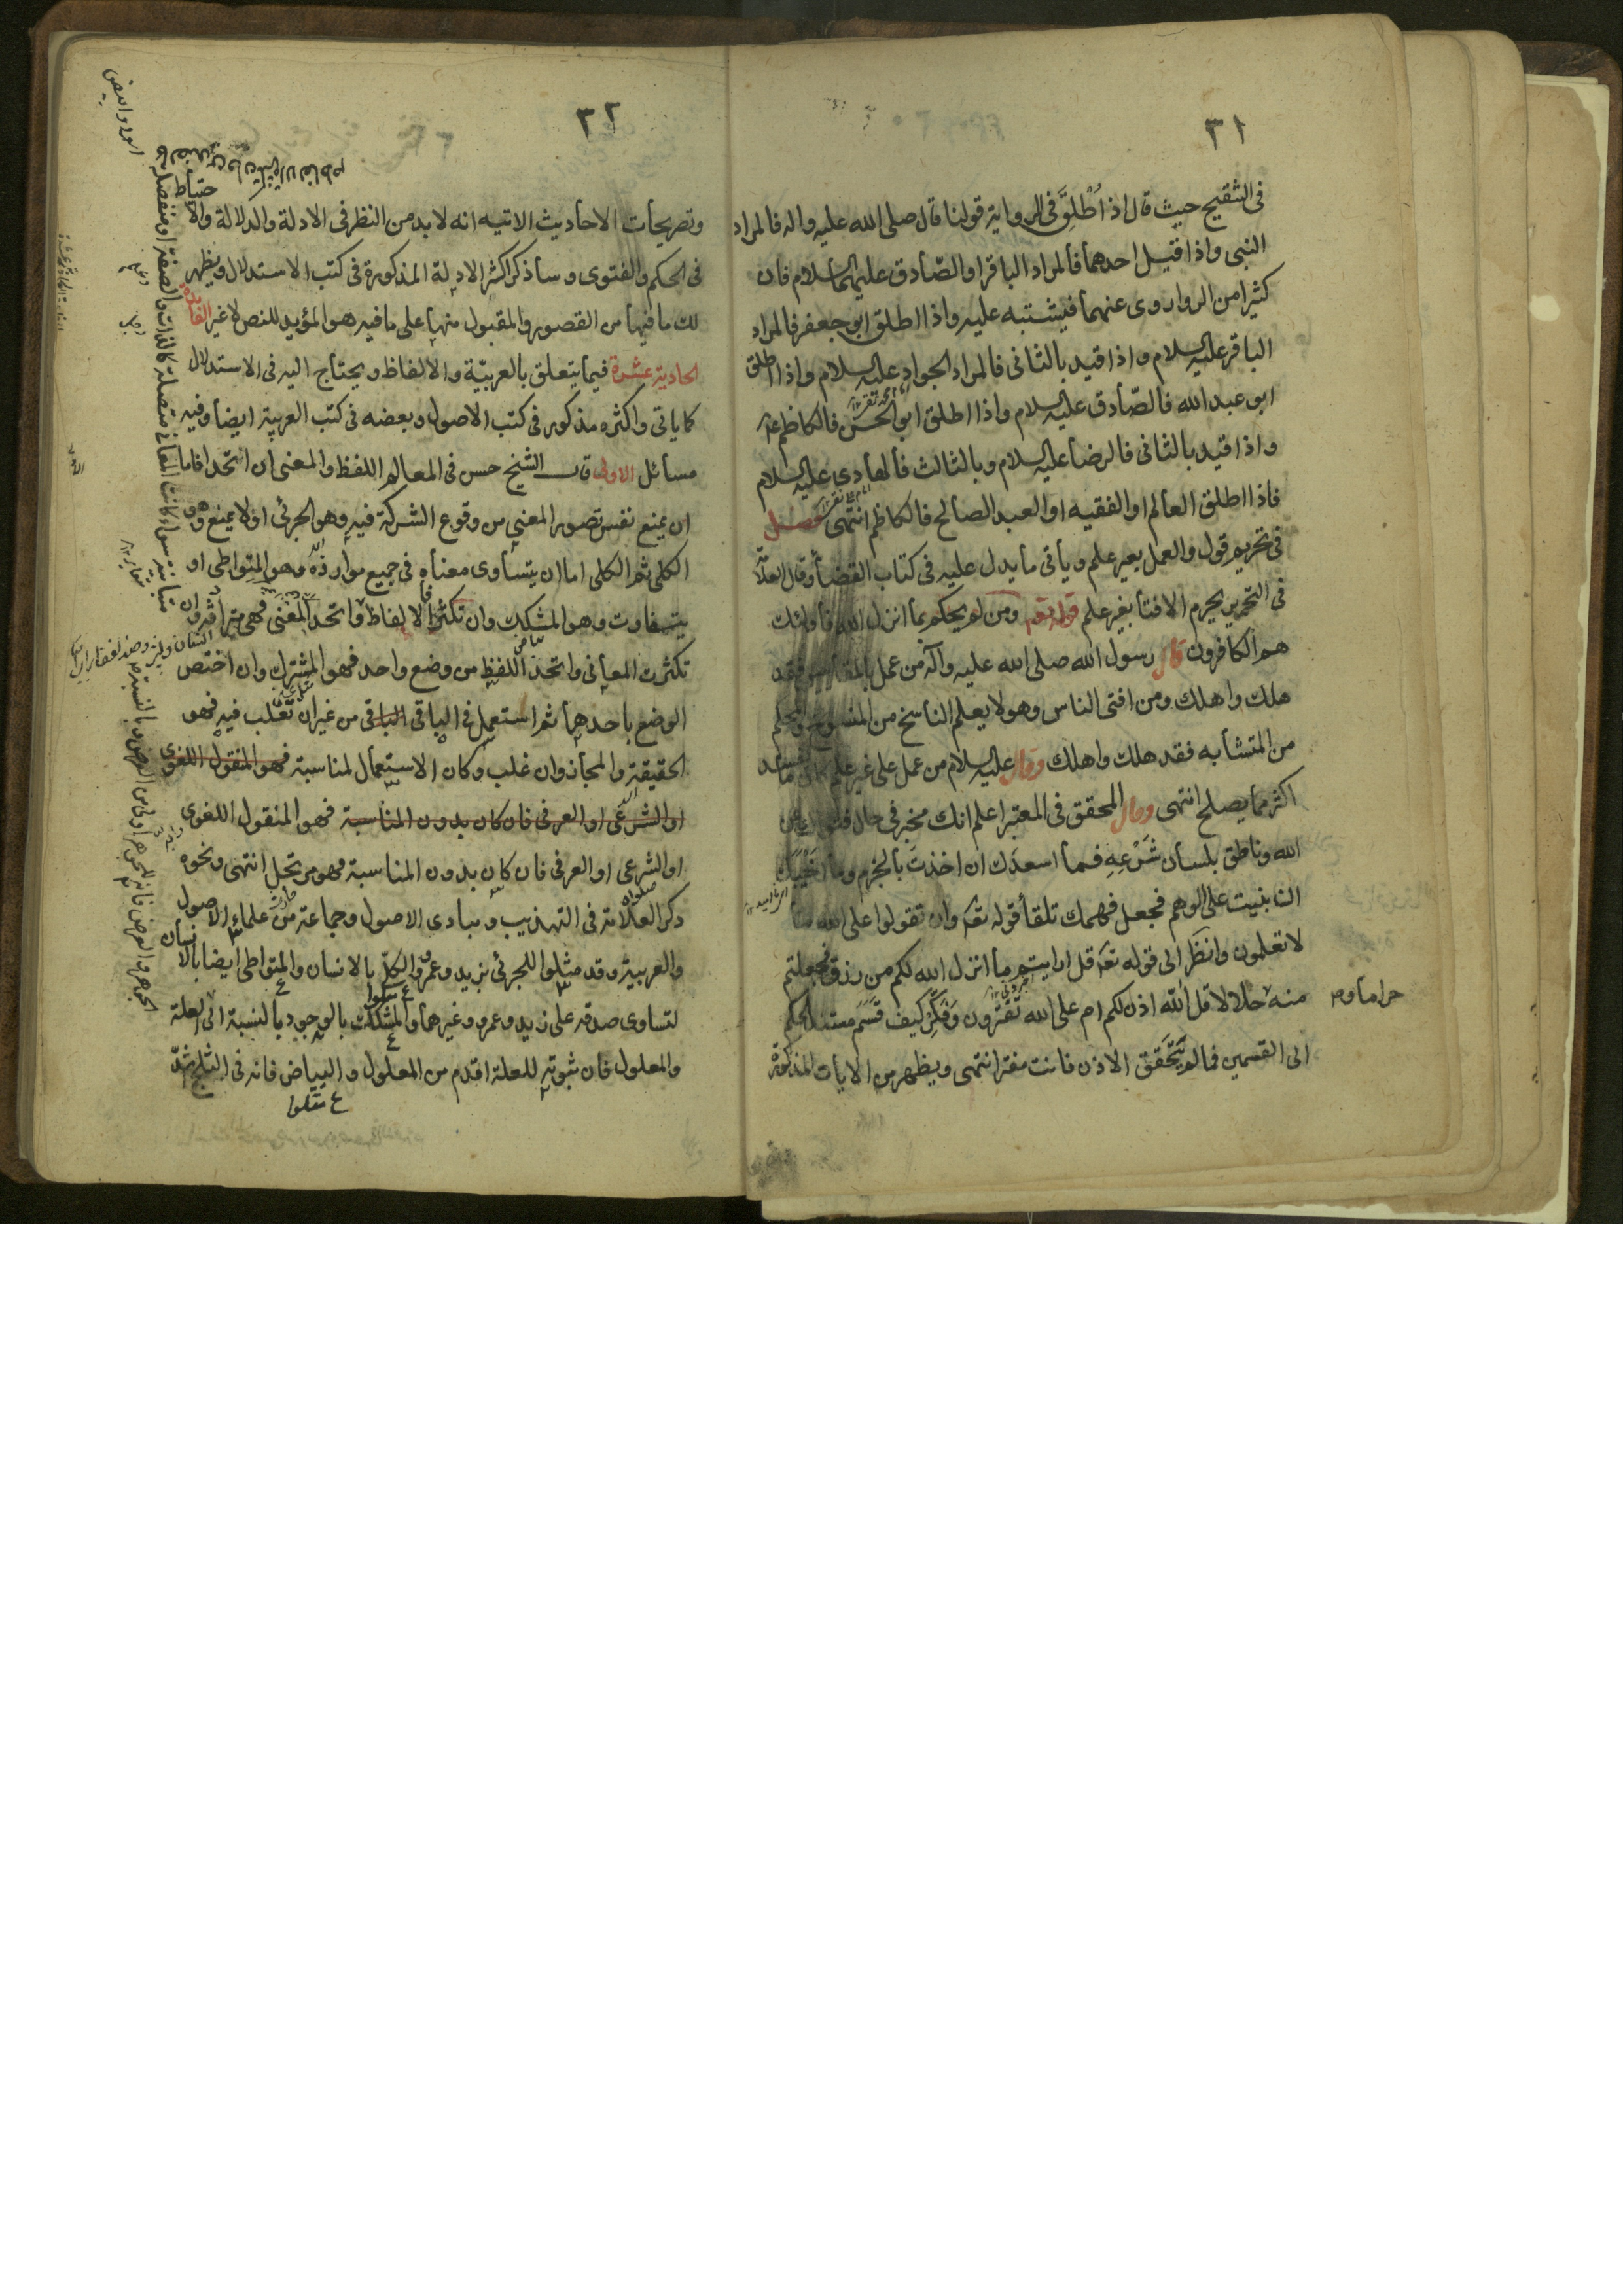 ٣١
فى التنقيح حيث قال اذا اُطْلِقَ فى الرواية قولنا قال صلى الله عليه واله فالمراد
النبى واذا قيل احدهما فالمراد الباقر او الصّادق عليهما السلام فان
كثيرا من الروا روى عنهما فيشتبه عليه واذا اطلق ابو جعفر فالمراد
الباقر عليه السلام واذا قيد بالثانى فالمراد الجواد عليه السلام واذا اطلق
ابو عبد الله فالصّادق عليه السلام واذا اطلق ابو الحسن فالكاظم
واذا قيد بالثانى فالرضا عليه السلام وبالثالث فالهادى عليه السلام
فاذا اطلق العالم او الفقيه او العبد الصالح فالكاظم انتهى فصل
فى تحريم قول والعمل بغير علم وياتى ما يدل عليه فى كتاب القضا وقال العلامة
فى التحرير يحرم الافتا بغير علم قوله تعم ومن لم يحكم بما انزل الله فاولئك
هم الكافرون قال رسول الله صلى الله عليه وآله من عمل بالمقاييس فقد
هلك واهلك ومن افتى الناس وهو لا يعلم الناسخ من المنسوخ والمحكم
من المتشابه فقد هلك واهلك وقال عليه السلام من عمل على غير علم كان ما يفسد
اكثر مما يصلح انتهى وقال المحقق فى المعتبر اعلم انك مخبر فى حال فتواك عن
الله وناطق بلسان شَرْعِهِ فما اسعدَك ان اخذتَ بالجزم وما اَخْيَبَك
ان بنيت على الوهم فجعل فهمك تلقا قوله تعَه وان تقولوا على الله ما
لا تعلمون وانظَر الى قوله تعَه قل ارايتم ما انزل الله لكم من رزق فجعلتم
منه حلالا قل الله اذن لكم ام على الله تفترون وَفَكِّر كيف قَسَّمَ مستند الحكم
حراما و
الى القسمين فما لم يتَحَقق الاذن فانت مفتر انتهى ويظهر من الايات المذكورة
٣٢
وتصريحات الاحاديث الاتيه انه لا بد من النظر فى الادلة والدلالة والاحتياط
فى الحكم والفتوى وساذكر اكثر الادلة المذكورة فى كتب الاستدلال ويظهر
لك ما فيها من القصور والمقبول منها على ما فيه هو المؤيد للنص لا غير الفائدة
الحادية عشرة فيما يتعلق بالعربيّة والالفاظ ويحتاج اليه فى الاستدلال
كما ياتى واكثره مذكور فى كتب الاصول وبعضه فى كتب العربية ايضا وفيه
مسائل الاولى قال الشيخ حسن فى المعالم اللفظ والمعنى ان اتحدا فاما
ان يمنع نفس تصور المعنى من وقوع الشركة فيه وهو الجزئى او لا يمنع وهو
الكلى ثم الكلى اما ان يتساوى معناه فى جميع موارده وهو المتواطى او
يتفاوت وهو المشكك وان تكثرا فالالفاظ واتحد المعنى فهى مترادفة وان
تكثرت المعانى واتحد اللفظ من وضع واحد فهو المشترك وان اختص
الوضع باحدهما ثم استعمل فى الباقى الباقى من غير ان تغلب فيه فهو
الحقيقة والمجاز وان غلب وكان الاستعمال لمناسبة فهو المنقول اللغوى
او الشرعى او العرفى فان كان بدون المناسبة فهو المنقول اللغوى
او الشرعى او العرفى فان كان بدون المناسبة فهو مرتجل انتهى ونحوه
ذكر العلامة فى التهذيب ومبادى الاصول وجماعة من علماء الاصول
والعربية وقد مثلوا للجزئى بزيد وعمرو والكلّ بالانسان والمتواطى ايضا بالانسان
لتساوى صدقه على زيد وعمرو وغيرهما والمشكك بالوجود بالنسبة الى العلة
والمعلول فان ثبوته للعلة اقدم من المعلول والبياض فانه فى الثلج اشدّ